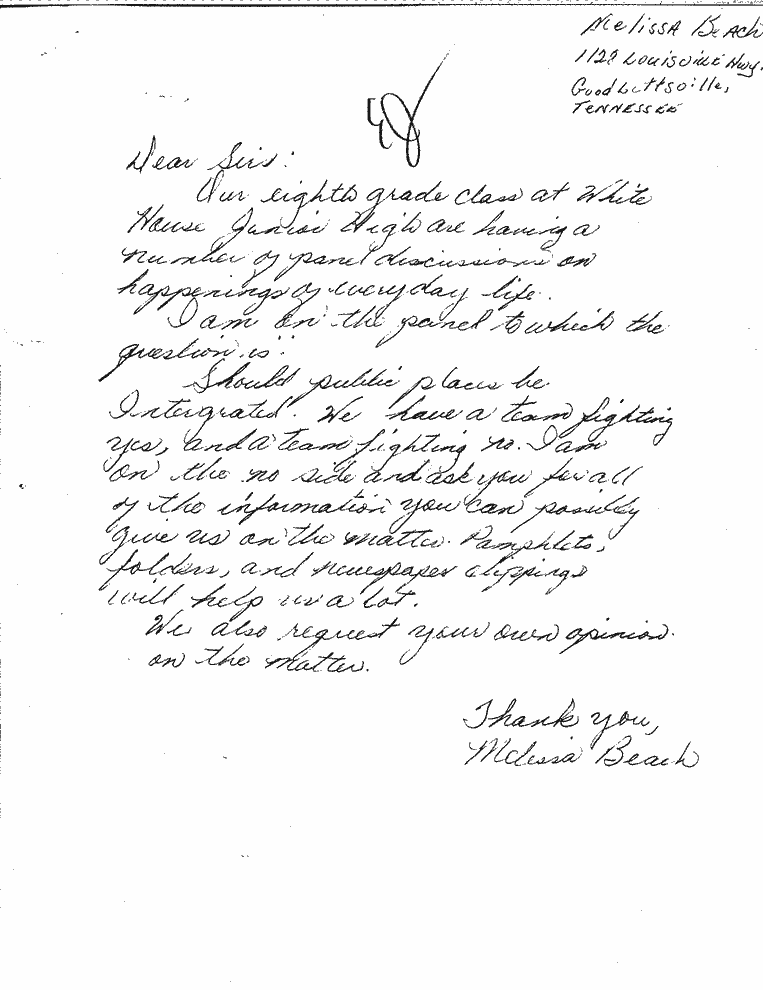 Melissa Beach
1128 Louisville Hwy.
Goodlettsville,
TENNESSEE
Dear Sirs:
Our eighth grade class at White
House Junior High are having a
number of panel discussions on
happenings of everyday life.
I am on the panel to which the
question is:
Should public places be
Intergrated. We have a team fighting
yes, and a team fighting no. I am
on the no side and ask you for all
of the information you can possibly
give us on the matter. Pamphlets,
folders, and newspaper clippings
will help us a lot.
We also request your own opinion
on the matter.
Thank you,
Melissa Beach